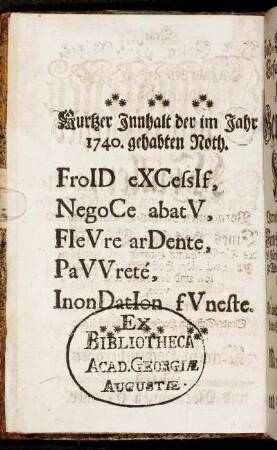 Kurtzer Innhalt der im Jahr
1740. gehabten Noth.
FroID eXCeſsIf,
NegoCe abatV,
FIeVre arDente,
PaVVreté,
InonDatIon fVneſte.
EX
BIBLIOTHECA
ACAD. GEORGIÆ
AUGUSTÆ.